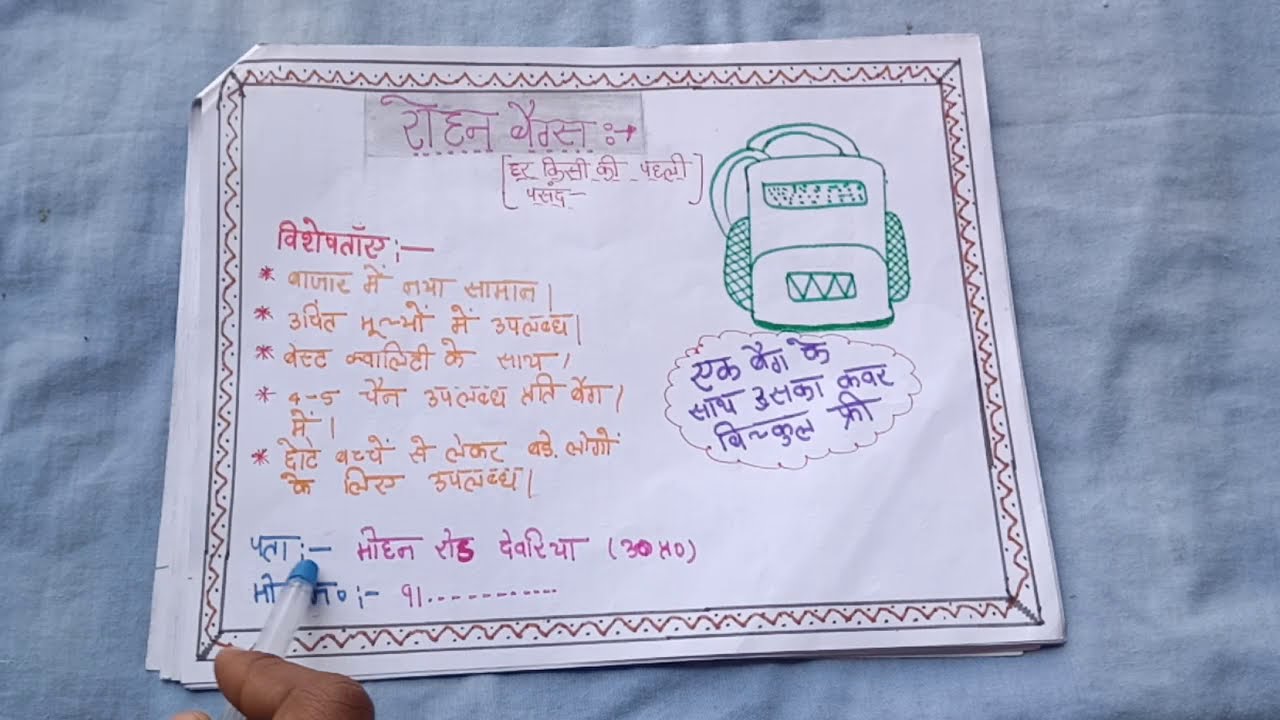 रोहन बैग्स :→
[हर किसी की पहली
पसंद—]
विशेषताँए :—
* बाजार में नया सामान।
* उचित मूल्यों में उपलब्ध।
* बेस्ट क्वालिटी के साथ।
* 4-5 चैन उपलब्ध प्रति बैग।
में।
* छोटे बच्चें से लेकर बड़े लोगों
के लिए उपलब्ध।
एक बैग के
साथ उसका कवर
बिल्कुल फ्री
पता :— मोहन रोड देवरिया (उ०प्र०)
मो० न० :- 91...........